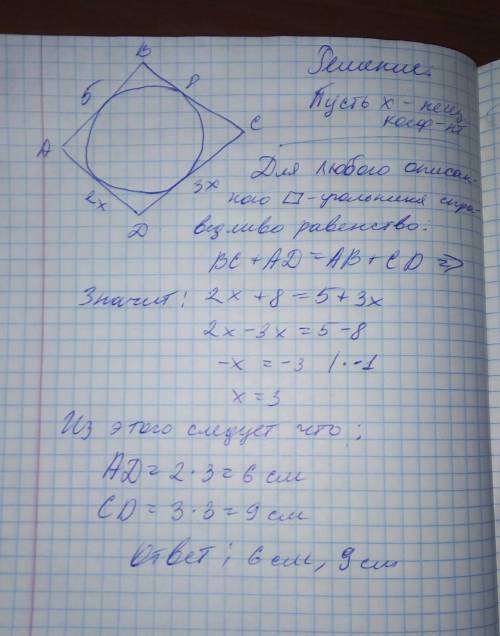 Решение.
Пусть x - неиз.
коэф-нт
B
5
8
A
C
2x
3x
D
Для любого описан-
ного □-угольника спра-
ведливо равенство:
BC + AD = AB + CD ⇒
Значит: 2x + 8 = 5 + 3x
2x - 3x = 5 - 8
-x = -3 | · -1
x = 3
Из этого следует что:
AD = 2 · 3 = 6 см
CD = 3 · 3 = 9 см
Ответ: 6 см, 9 см